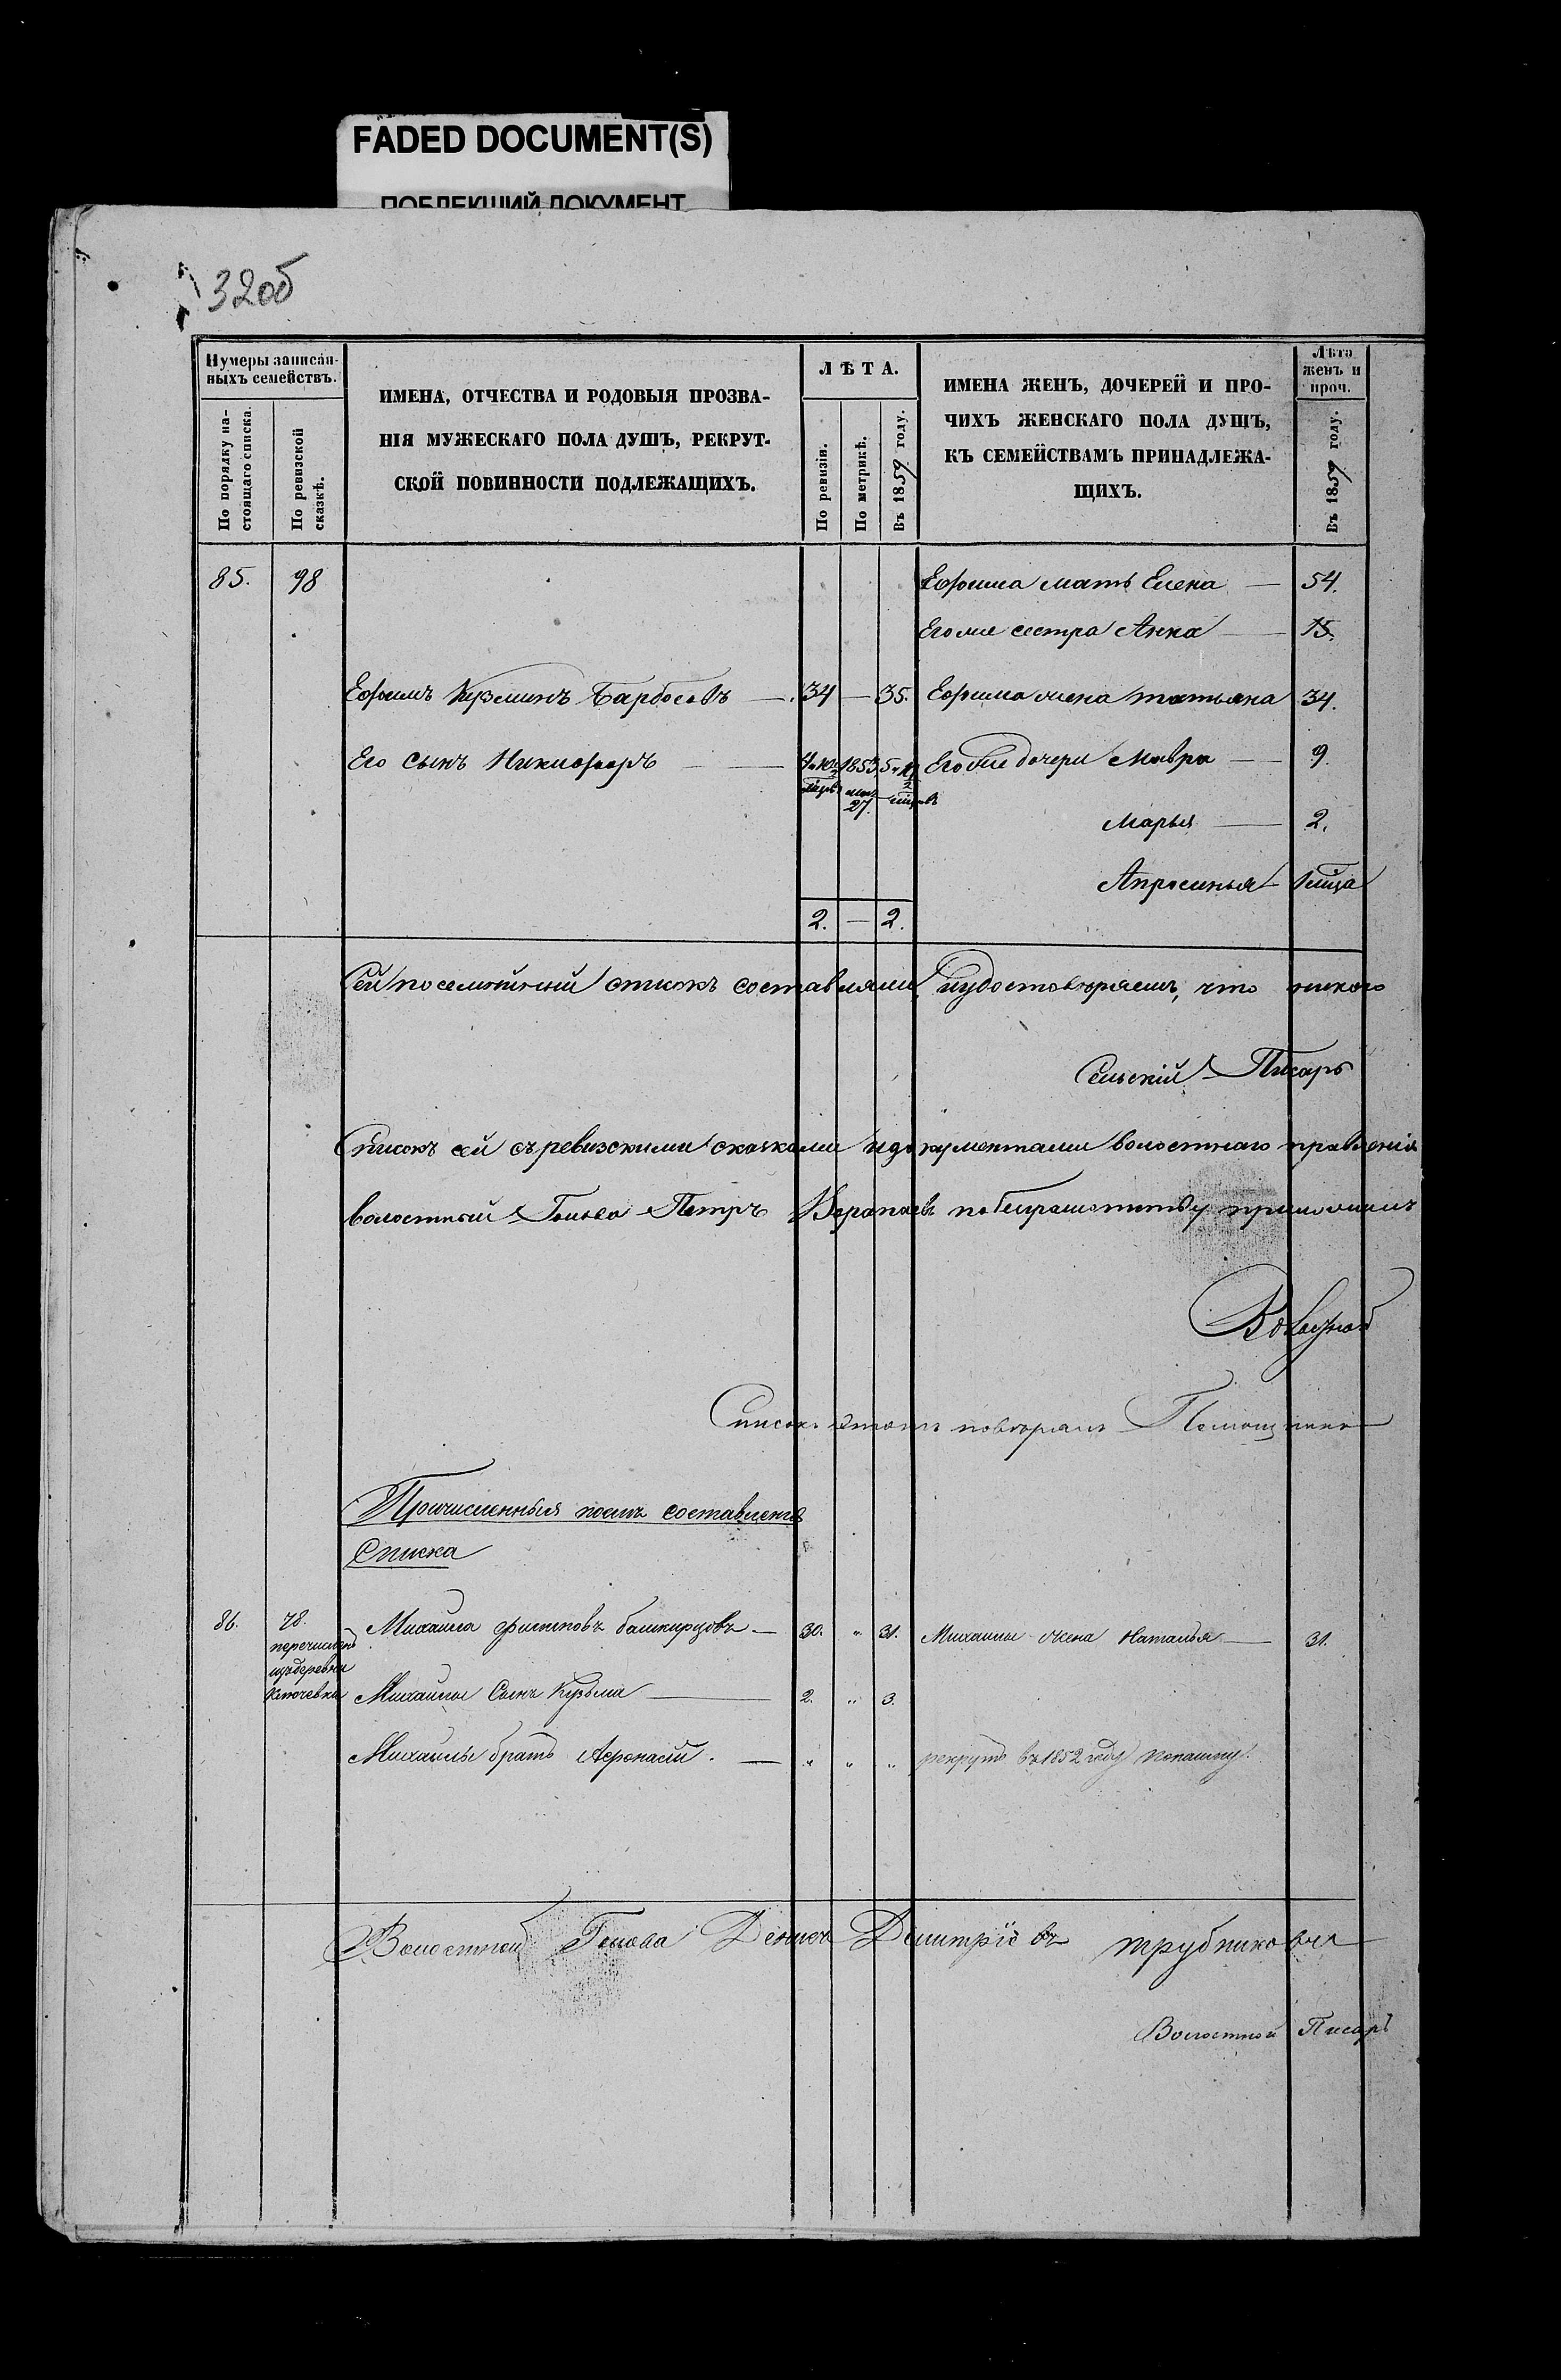 FADED DOCUMENT(S)
ПОБЛЕКШИЙ ДОКУМЕНТ
32об
Нумеры записан-
ныхъ семействъ.
По порядку на-
стоящаго списка.
По ревизской
сказкѣ.
ИМЕНА, ОТЧЕСТВА И РОДОВЫЯ ПРОЗВА-
НІЯ МУЖЕСКАГО ПОЛА ДУШЪ, РЕКРУТ-
СКОЙ ПОВИННОСТИ ПОДЛЕЖАЩИХЪ.
ЛѢТА.
По ревизіи.
По метрикѣ.
Въ 1859 году.
ИМЕНА ЖЕНЪ, ДОЧЕРЕЙ И ПРО-
ЧИХЪ ЖЕНСКАГО ПОЛА ДУШЪ,
КЪ СЕМЕЙСТВАМЪ ПРИНАДЛЕЖА-
ЩИХЪ.
Лѣта
женъ и
проч.
Въ 1859 году.
85. 98 Ефима мать Елена — 54.
Его же сестра Анна — 15.
Ефимъ Кузминъ Барбосовъ — 34 — 35. Ефима жена татьяна 34.
Его сынъ Никифоръ — 1853 Его же дочери Мавра — 9.
27.
Марья — 2.
Апросинья — 1 мца
2. — 2.
Сей посемейный списокъ составляли, и удостовѣряемъ, что никого
Сельскій Писарь
Списокъ сей съ ревизскими сказками и документами волостнаго правленія
волостный Голова Петръ по безграмотству приложилъ
Списокъ этотъ повѣрялъ Помощникъ
Причисленныя послѣ составленія
Списка
86. 78. Михаила филиповъ башкирцовъ — 30. " 31. Михаилы жена Наталья — 31.
перечисленъ
изъ деревни
Ключевки Михаилы Сынъ Кузьма — 2. " 3.
Михаилы братъ Афонасій. — " " " рекрутъ въ 1852 году
Волостной Голова Денисъ Дмитріевъ трубниковъ
Волостной Писарь